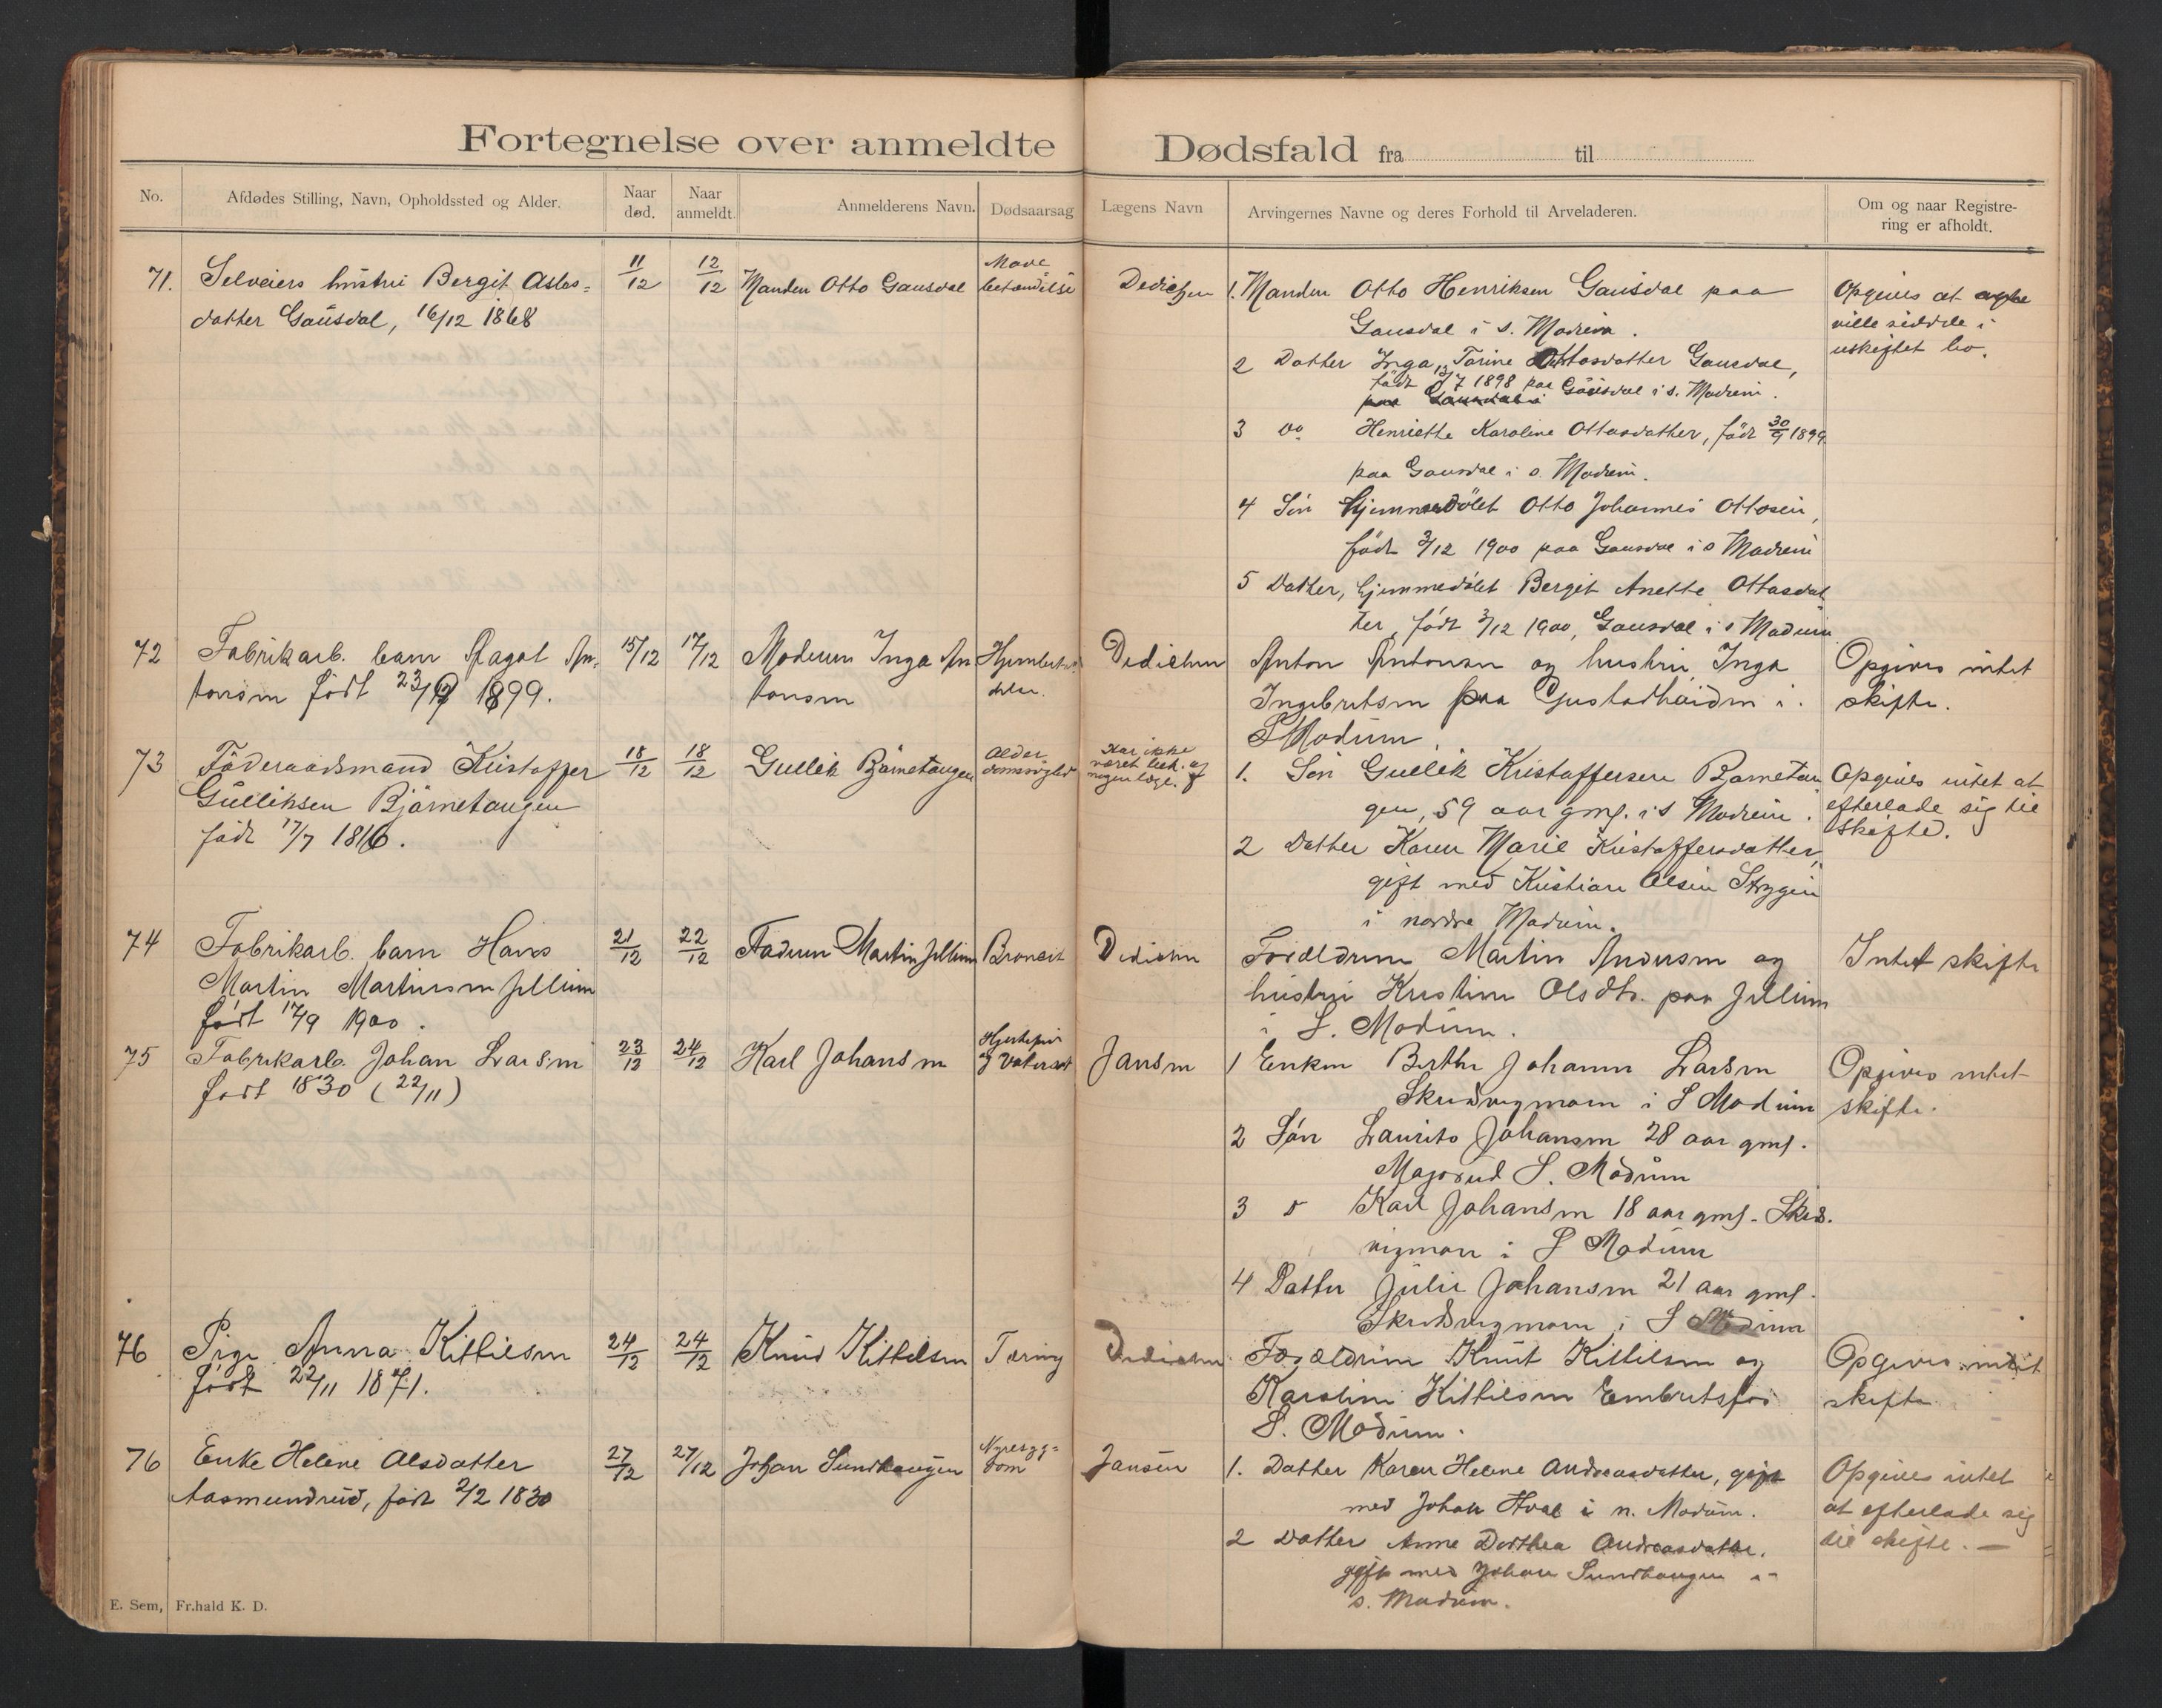 Fortegnelse over anmeldte Dødsfald fra til
No.
Afdødes Stilling, Navn, Opholdssted og Alder.
Naar død.
Naar anmeldt.
Anmelderens Navn.
Dødsaarsag
Lægens Navn
Arvingernes Navne og deres Forhold til Arveladeren.
Om og naar Registre-
ring er afholdt.
71.
Selveiers hustru Bergit Aslas=
datter Gausdal, 16/12 1868
11/12
12/12
Manden Otto Gausdal
Mave
betændelse
Dedichen
1. Manden Otto Henriksen Gausdal paa
Gausdal i s. Modum.
2 Datter Inga Torine Ottosdatter Gausdal,
født 13/7 1898 paa Gausdal i s. Modum.
paa Gausdal i
3 do Henriette Karoline Ottosdatter, født 30/9 1899
paa Gausdal i s. Modum.
4 Søn Hjemmedøbt Otto Johannes Ottosen,
født 3/12 1900 paa Gausdal i s Modum
5 Datter, hjemmedøbt Bergit Anette Ottosdat
ter, født 3/12 1900, Gausdal i s Modum
Opgives at
ville sidde i
uskiftet bo.
72
Fabrikarb. barn Aagot An=
tonsen født 23/9 1899.
15/12
17/12
Moderen Inga An
tonsen
Dedichen
Anton Antonsen og hustru Inga
Ingebretsen paa Gustadhaiden i
S Modum.
Opgives intet
skifte.
73
Føderaadsmand Kristoffer
Gulliksen Bjørnetangen
født 17/7 1816.
18/12
18/12
Gullik Bjørnetangen
Alder-
domssvaghed
Har ikke
været beh. af
nogen læge.
1. Søn Gullik Kristoffersen Bjørnetan
gen, 59 aar gml. i S Modum.
2 Datter Karen Marie Kristoffersdatter,
gift med Kristian Olsen Strygen
i nordre Modum.
Opgives intet at
efterlade sig til
skifte.
74
Fabrikarb. barn Hans
Martin Martinsen Jellum
født 17/9 1900.
21/12
22/12
Faderen Martin Jellum
Broncit
Dedichen
Forældrene Martin Andersen og
hustru Kristine Olsdtr. paa Jellum
i S. Modum.
Intet skifte
75
Fabrikarb. Johan Larsen
født 1830 (22/11)
23/12
24/12
Karl Johansen
Hjertefeil
og Vatersot
Jansen
1 Enken Berthe Johanne Larsen
Skredvigmoen i S Modum
2 Søn Laurits Johansen 28 aar gml.
Magorud S. Modum
3 " Karl Johansen 18 aar gml. Skred.
vigmoen i S Modum
4 Datter Julie Johansen 21 aar gml.
Skredvigmoen i S Modum
Opgives intet
skifte.
76
Pige Anna Kittilsen
født 22/11 1871.
24/12
24/12
Knud Kittilsen
Tæring
Dedichen
Forældrene Knut Kittilsen og
Karoline Kittilsen Embretsfos
S. Modum.
Opgives intet
skifte
76
Enke Helene Olsdatter
Aasmundrud, født 2/2 1830
27/12
27/12
Johan Sundhaugen
Nyresyg=
dom
Jansen
1. Datter Karen Helene Andreasdatter, gift
med Johan Hval i n. Modum.
2 Datter Anne Dorthea Andreasdatter.
gift med Johan Sundhaugen i
s. Modum.
Opgives intet
at efterlade sig
til skifte. —
E. Sem, Fr.hald K. D.